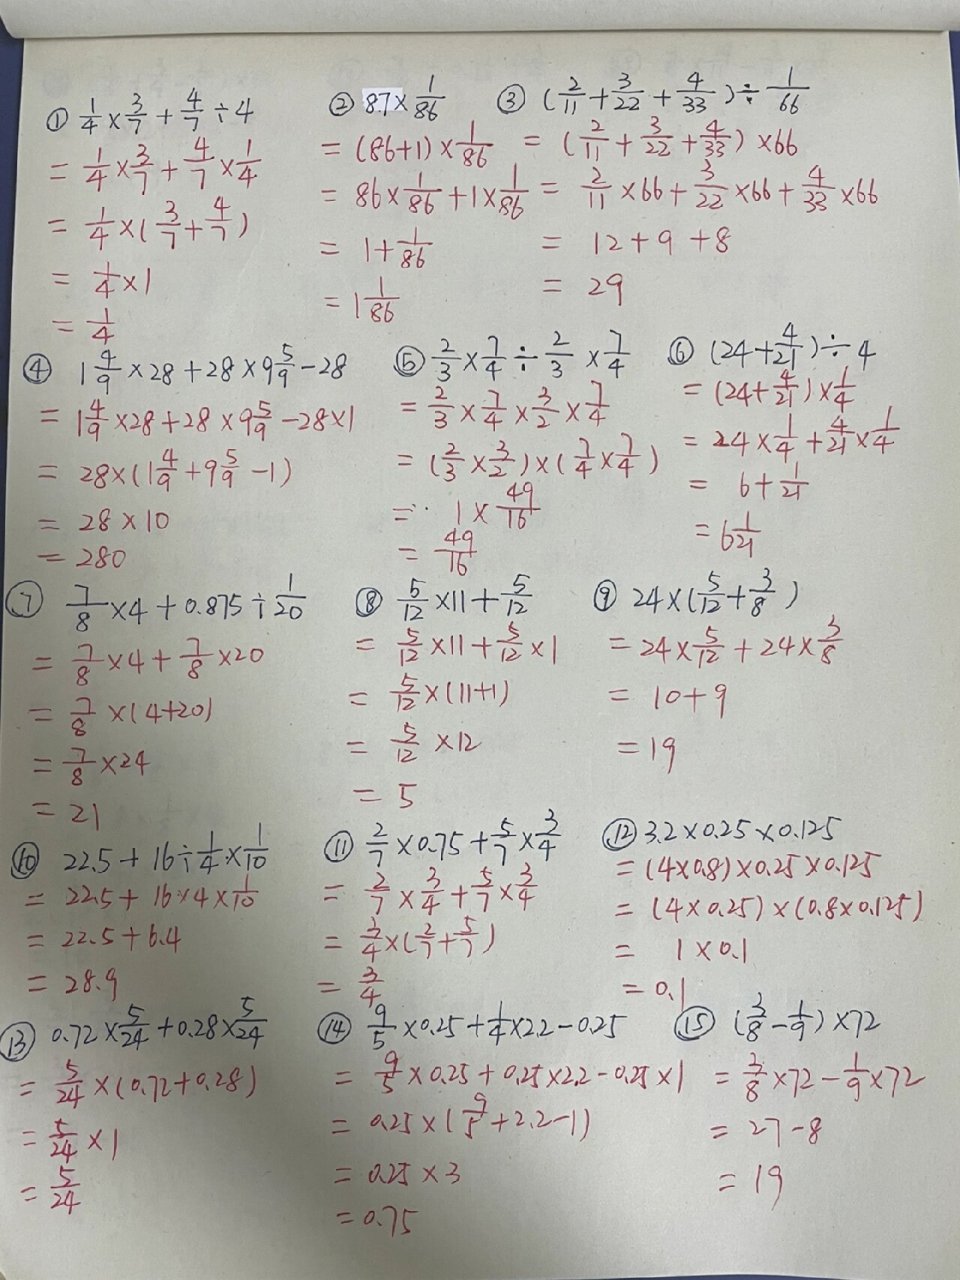 ① 1/4 × 3/7 + 4/7 ÷ 4
= 1/4 × 3/7 + 4/7 × 1/4
= 1/4 × (3/7 + 4/7)
= 1/4 × 1
= 1/4
② 87 × 1/86
= (86+1) × 1/86
= 86 × 1/86 + 1 × 1/86
= 1 + 1/86
= 1 1/86
③ (2/11 + 3/22 + 4/33) ÷ 1/66
= (2/11 + 3/22 + 4/33) × 66
= 2/11 × 66 + 3/22 × 66 + 4/33 × 66
= 12 + 9 + 8
= 29
④ 1 4/9 × 28 + 28 × 9 5/9 - 28
= 1 4/9 × 28 + 28 × 9 5/9 - 28 × 1
= 28 × (1 4/9 + 9 5/9 - 1)
= 28 × 10
= 280
⑤ 2/3 × 7/4 ÷ 2/3 × 7/4
= 2/3 × 7/4 × 3/2 × 7/4
= (2/3 × 3/2) × (7/4 × 7/4)
= 1 × 49/16
= 49/16
⑥ (24 + 4/21) ÷ 4
= (24 + 4/21) × 1/4
= 24 × 1/4 + 4/21 × 1/4
= 6 + 1/21
= 6 1/21
⑦ 7/8 × 4 + 0.875 ÷ 1/20
= 7/8 × 4 + 7/8 × 20
= 7/8 × (4+20)
= 7/8 × 24
= 21
⑧ 5/12 × 11 + 5/12
= 5/12 × 11 + 5/12 × 1
= 5/12 × (11+1)
= 5/12 × 12
= 5
⑨ 24 × (5/12 + 3/8)
= 24 × 5/12 + 24 × 3/8
= 10 + 9
= 19
⑩ 22.5 + 16 ÷ 1/4 × 1/10
= 22.5 + 16 × 4 × 1/10
= 22.5 + 6.4
= 28.9
⑪ 2/7 × 0.75 + 5/7 × 3/4
= 2/7 × 3/4 + 5/7 × 3/4
= 3/4 × (2/7 + 5/7)
= 3/4
⑫ 3.2 × 0.25 × 0.125
= (4 × 0.8) × 0.25 × 0.125
= (4 × 0.25) × (0.8 × 0.125)
= 1 × 0.1
= 0.1
⑬ 0.72 × 5/24 + 0.28 × 5/24
= 5/24 × (0.72 + 0.28)
= 5/24 × 1
= 5/24
⑭ 9/5 × 0.25 + 1/4 × 2.2 - 0.25
= 9/5 × 0.25 + 0.25 × 2.2 - 0.25 × 1
= 0.25 × (9/5 + 2.2 - 1)
= 0.25 × 3
= 0.75
⑮ (3/8 - 1/9) × 72
= 3/8 × 72 - 1/9 × 72
= 27 - 8
= 19